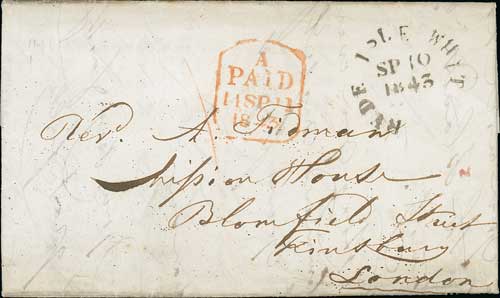 A
PAID
11 SP 11
1843
RYDE ISLE WIGHT
SP 10
1843
Revd. A. Tidman
Mission House
Blomfield Street
Finsbury
London